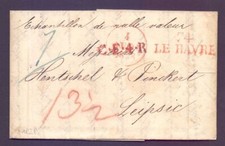 Echantillon de nulle valeur
Messieurs
C.F.4.R LE HAVRE
Hentschel & Pinckert
13½
Leipsic